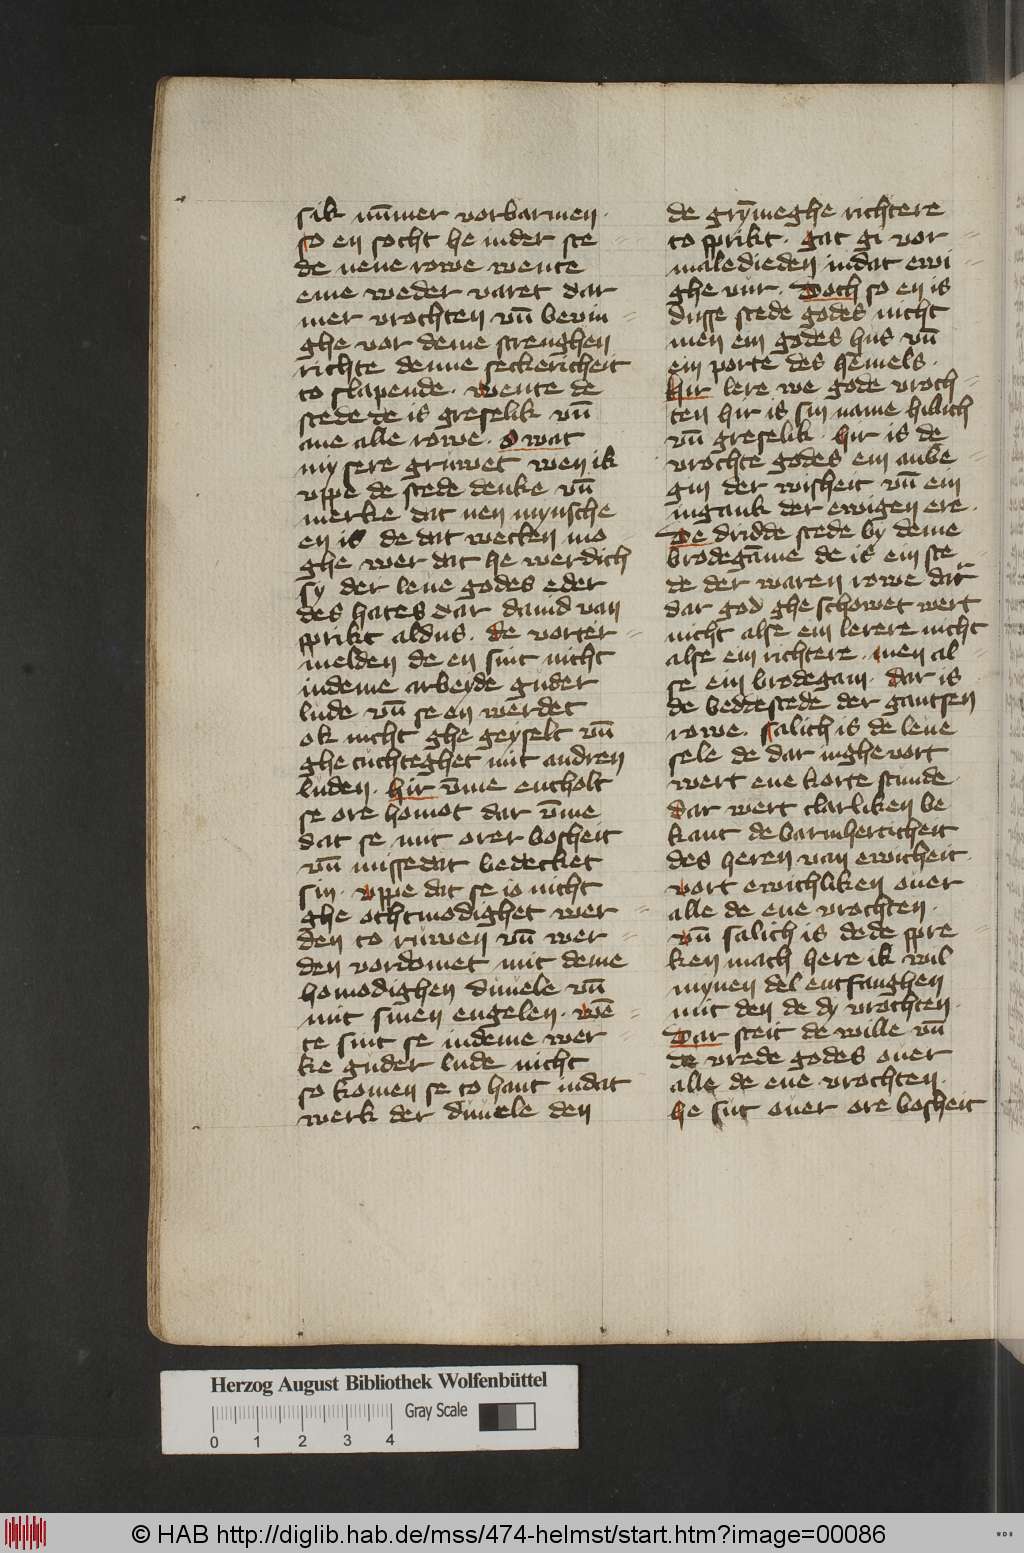 sik nūmer vorbarmen.
so en socht he in der ste
de nene rowe wente
eme weder varet dar
mer vrochten vn̄ bevin
ghe vor deme strenghen
richte denne seckericheit
to slapende. wente de
stede de is greselik vn̄
ane alle rowe. O wat
my sere gruwet wen ik
vppe de stede denke vn̄
merke dat nen mynsche
en is de dat wecken mo
ghe wer dat he werdich
sy der leue godes eder
des hates dar dauid van
sprikt aldus. de vorter
melden de en sint nicht
in deme arbeyde guder
lude vn̄ se en werdet
ok nicht ghe geyselt vn̄
ghe tuchteghet mit andren
luden. hir v̄me entholt
se ore homot dar v̄me
dat se mit orer bosheit
vn̄ missedat bedecket
sin. vppe dat se io nicht
ghe othmodighet wer
den to ruwen vn̄ wer
den vordomet mit deme
homodighen diuele vn̄
mit sinen engelen. wē
te sint se in deme wer
ke guder lude nicht
so komen se to hant in dat
werk der diuele den
de grȳmeghe richtere
to sprikt. gat gi vor
maledieden in dat ewi
ghe vur. Doch so en is
dusse stede godes nicht
men ein godes hus vn̄
ein porte des hēmels.
hir lere we gode vroch
ten hir is sin name hillich
vn̄ greselik. hir is de
vrochte godes ein anbe
gin der wisheit vn̄ ein
ingank der ewigen ere.
De dridde stede by deme
brodegāme de is ein ste
de der waren rowe dar
dar god ghe schowet wert
nicht alse ein lerere nicht
alse ein richtere. men al
se ein brodegam. dar is
de beddestede der gantsen
rowe. salich is de leue
sele de dar inghevort
wert ene korte stunde.
dar wert clarliken be
kant de barmherticheit
des heren van ewicheit.
vort ewichliken ouer
alle de ene vrochten.
vn̄ salich is de de spre
ken mach here ik wil
mynen del entfanghen
mit den de dy vrochten.
Dar steit de wille vn̄
de vrede godes ouer
alle de ene vrochten.
he sut ouer ore bosheit
Herzog August Bibliothek Wolfenbüttel
Gray Scale
0 1 2 3 4
© HAB http://diglib.hab.de/mss/474-helmst/start.htm?image=00086